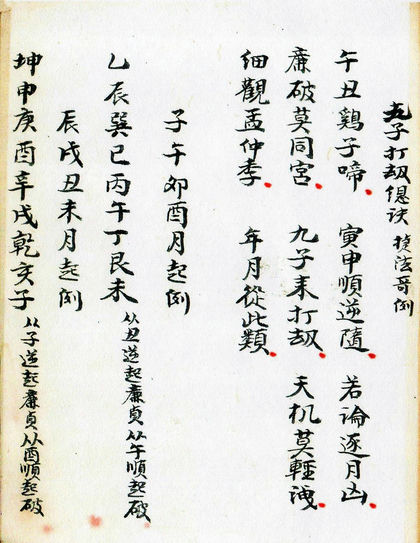 九子打刼總诀 楼法哥例
午丑鷄子啼 寅申順逆隨 若論逐月凶
廉破莫同宮 九子來打刼 天机莫輕洩
細觀孟仲季 年月從此類
子午夘酉月起例
乙辰巽巳丙午丁艮未 从丑逆起廉貞从午順起破
辰戌丑未月起例
坤申庚酉辛戌乾亥子 从子逆起廉貞从酉順起破